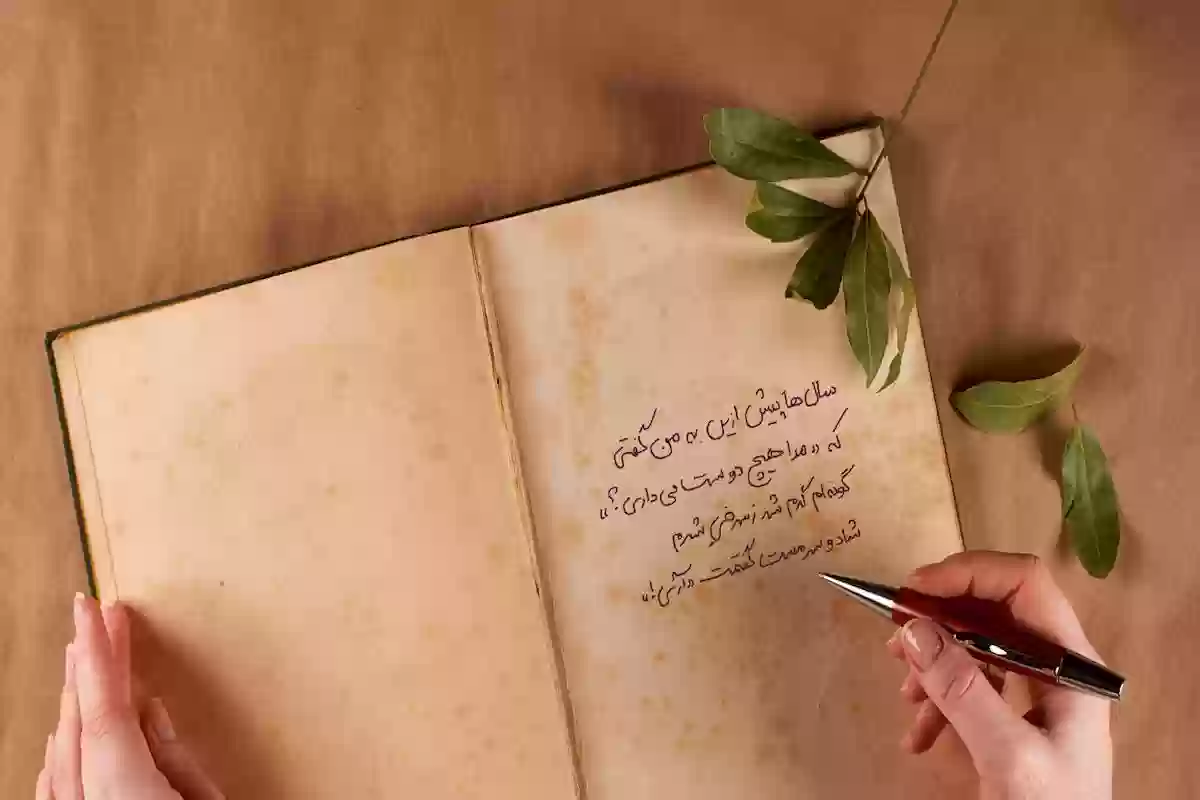 سال‌ها پیش ازین به من گفتی
که «مرا هیچ دوست می‌داری؟»
گونه‌ام گرم شد ز سرخیِ شرم
شاد و سرمست گفتمت «آری!»